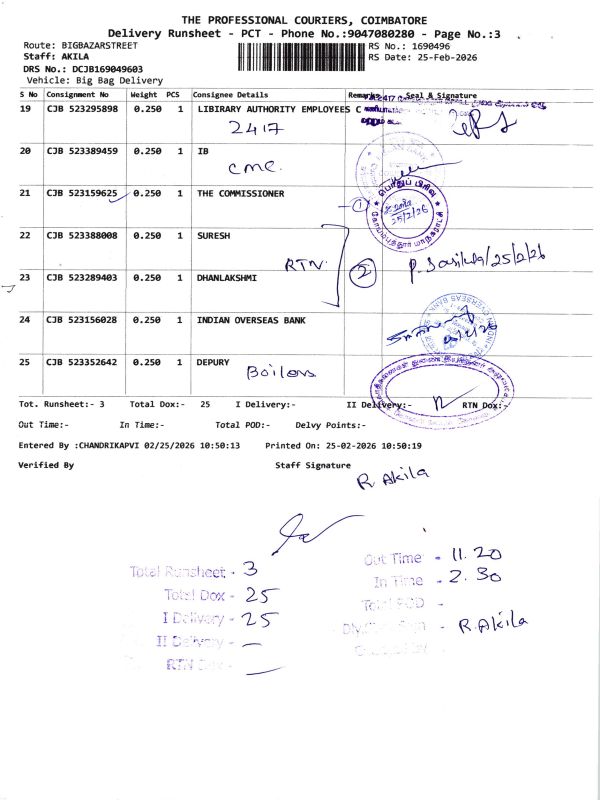 THE PROFESSIONAL COURIERS, COIMBATORE
Delivery Runsheet - PCT - Phone No.:9047080280 - Page No.:3
Route: BIGBAZARSTREET RS No.: 1690496
Staff: AKILA RS Date: 25-Feb-2026
DRS No.: DCJB169049603
Vehicle: Big Bag Delivery
S No Consignment No Weight PCS Consignee Details Remarks Seal & Signature
19 CJB 523295898 0.250 1 LIBIRARY AUTHORITY EMPLOYEES C
2417
20 CJB 523389459 0.250 1 IB
CMC.
21 CJB 523159625 0.250 1 THE COMMISSIONER
1 பொதுப் பிரிவு
25/2/26
22 CJB 523388008 0.250 1 SURESH
RTN. 2 P. Sasikala/25/2/26
23 CJB 523289403 0.250 1 DHANLAKSHMI
24 CJB 523156028 0.250 1 INDIAN OVERSEAS BANK
25 CJB 523352642 0.250 1 DEPURY
Boilers
Tot. Runsheet:- 3 Total Dox:- 25 I Delivery:- II Delivery:- RTN Dox:-
Out Time:- In Time:- Total POD:- Delvy Points:-
Entered By :CHANDRIKAPVI 02/25/2026 10:50:13 Printed On: 25-02-2026 10:50:19
Verified By Staff Signature
R. Akila
Total Runsheet - 3 Out Time - 11.20
Total Dox - 25 In Time - 2.30
I Delivery - 25 Total POD -
II Delivery - — R. Akila
RTN Dox - —